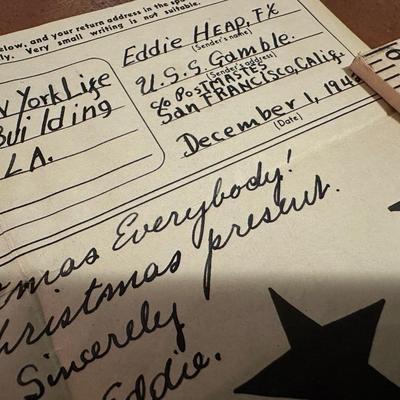 elow, and your return address in the sp
ly. Very small writing is not suitable.
Eddie HEAD, FX
(Sender's name)
U.S.S. Gamble.
(Sender's address)
c/o POSTMASTER
San FRANCISCO, Calif.
December 1, 194
(Date)
YorkLife
Building
LA.
mas Everybody!
hristmas present.
Sincerely
Eddie.